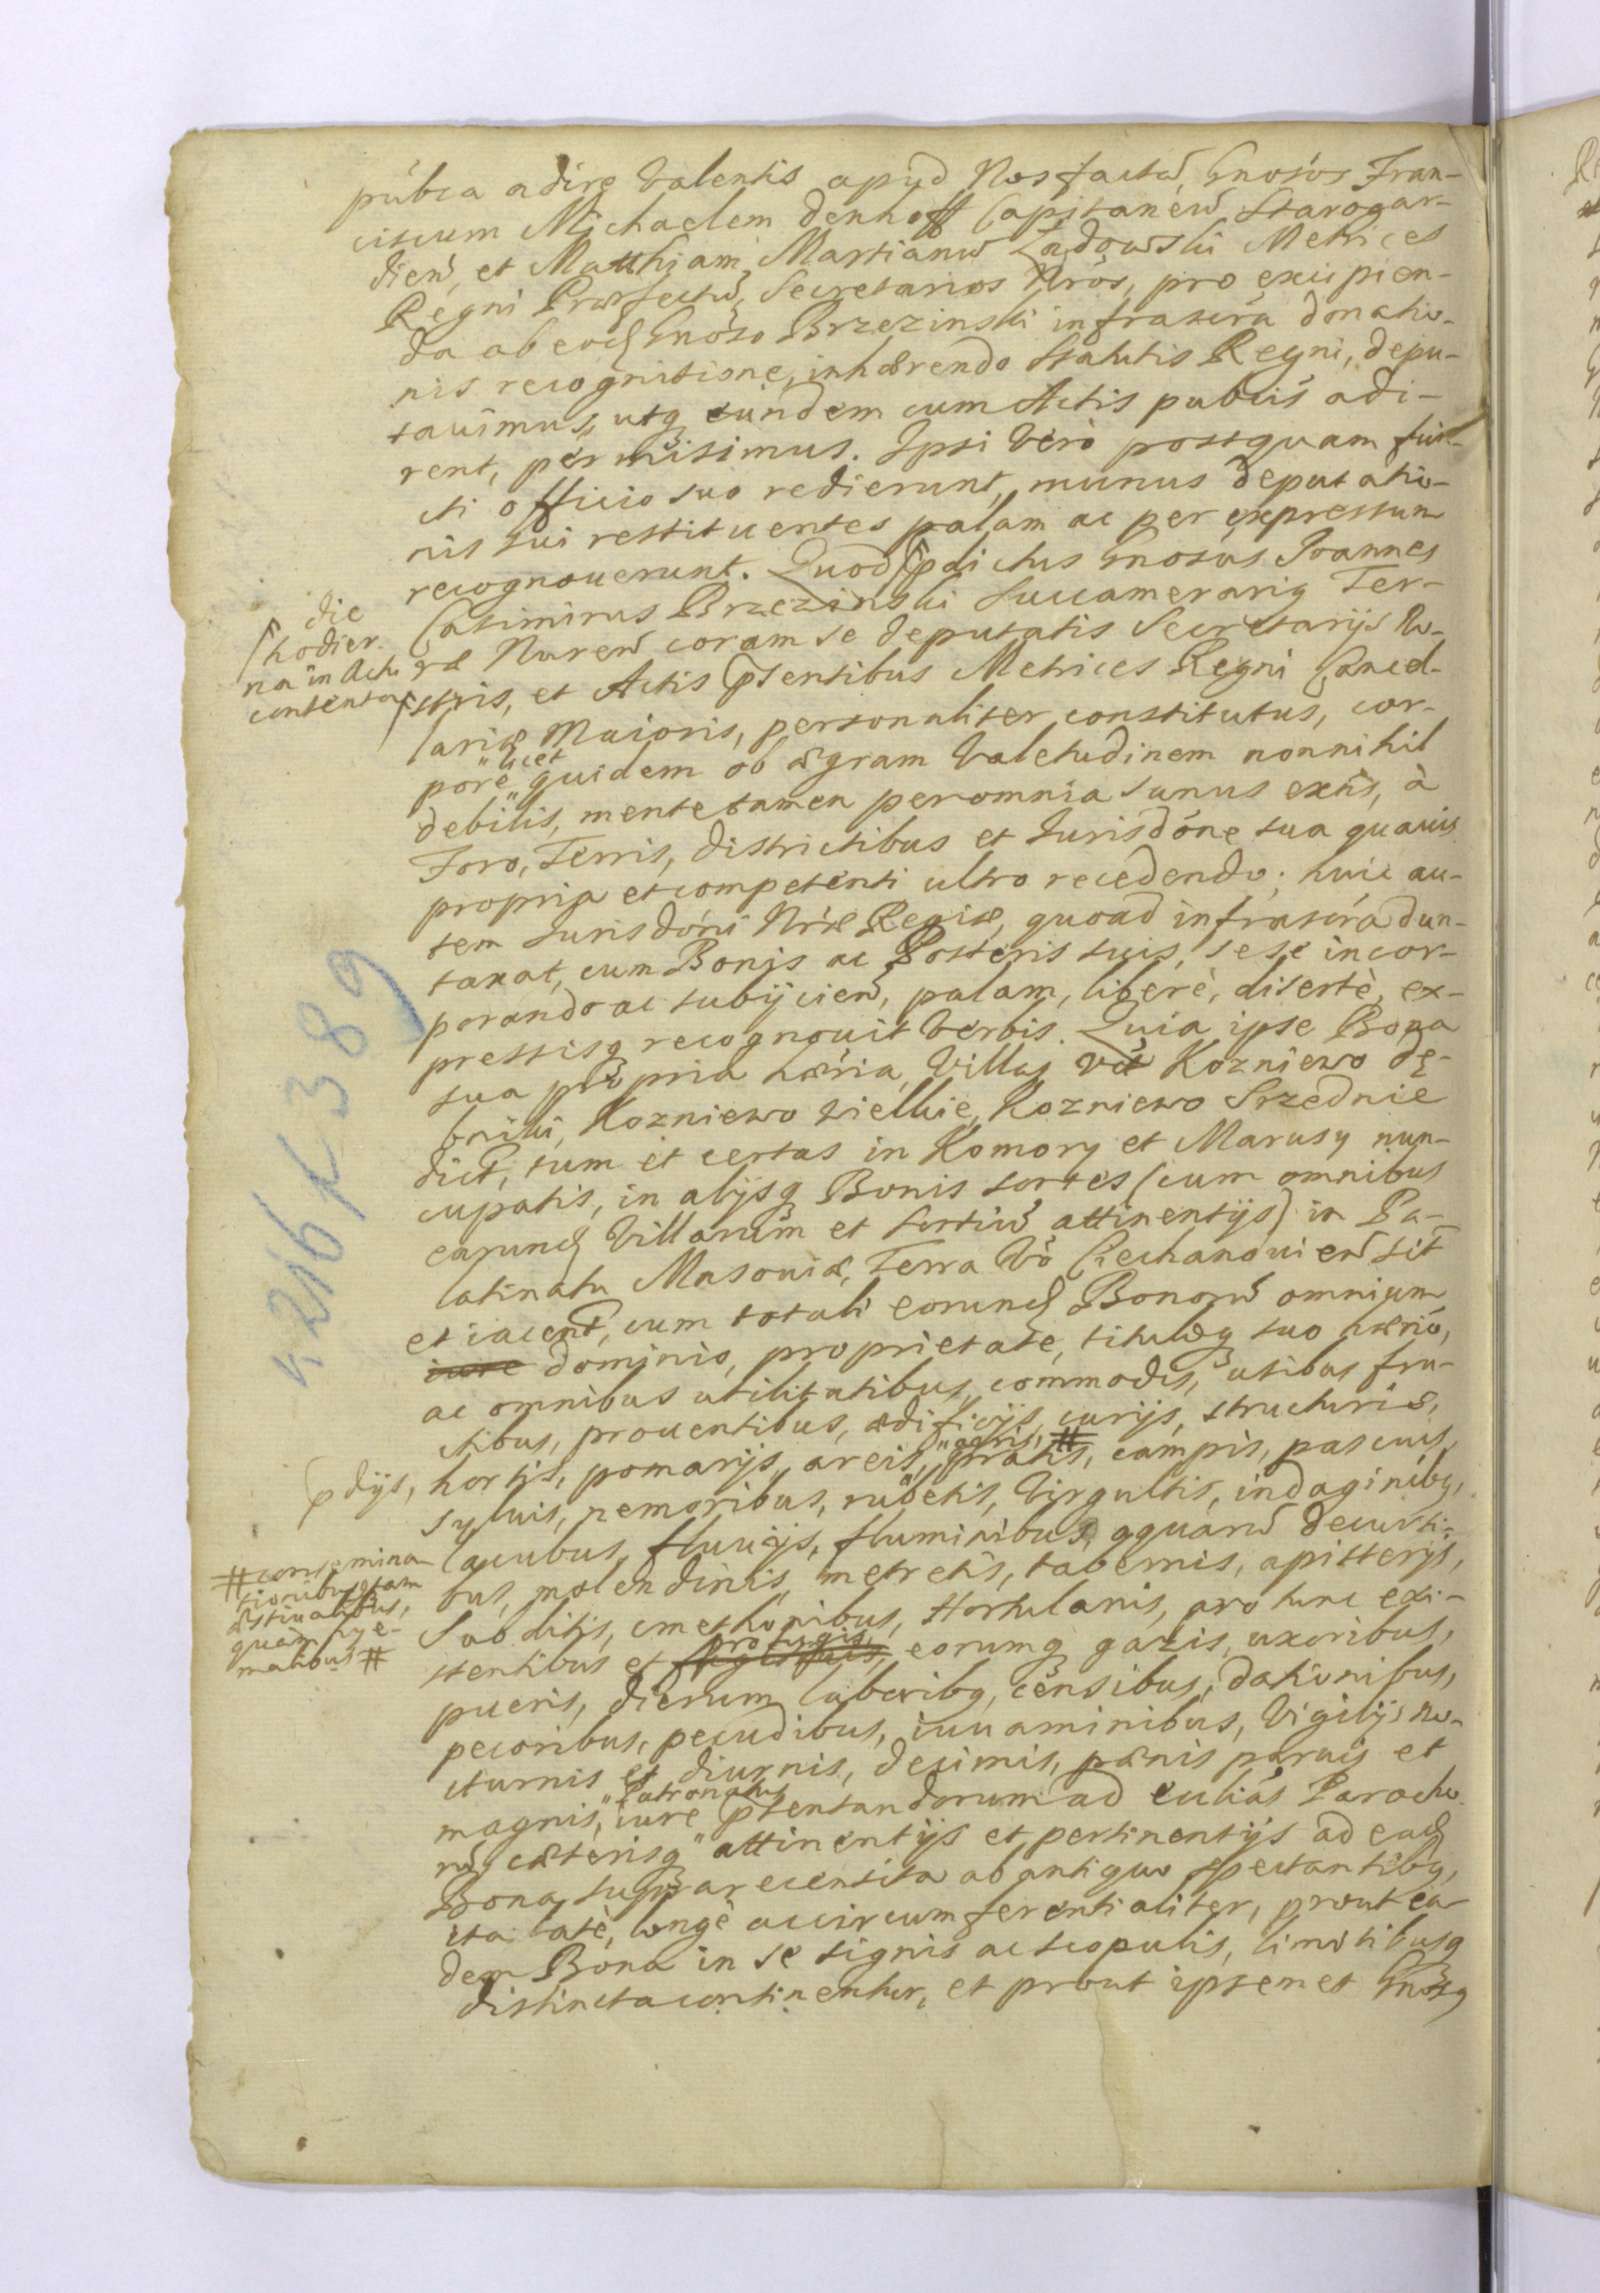 públca adire valentis apud Nos factã, Gnosos Fran-
ciscum Michaelem Denhoff Capitaneũ Starogar-
dieñ, et Matthiam Martianũ Ładowski Metrices
Regni Præfectũ, Secretarios Nros, pro excipien-
da ab eod Gnoso Brzezinski infrascra donatio-
nis recognitione, inhærendo Statutis Regni, depu-
tavimus, utq eundem cum Actis pubcis adi-
rent, permisimus. Ipsi verò postquam fun-
cti officio suo redierunt, munus deputatio-
nis sui restituentes palam ac per expressum
recognouerunt. Quod pdictus Gnosus Joannes
Casimirus Brzezinski Succamerarig Ter-
die
hodier-
na in Acti
contenta
ræ Nureñ coram se deputatis Secretarijs No-
stris, et Actis pšentibus Metrices Regni Cancel-
lariæ Maioris, personaliter constitutus, cor-
pore licet quidem ob ægram valetudinem nonnihil
debilis, mente tamen per omnia sanus extis, à
Foro, Terris, Districtibus et Jurisdóne sua quauis
propria et competenti ultro recedendo; huic au-
tem Jurisdóni Nræ Regiæ, quoad infrascra dun-
taxat, cum Bonis ac Posteris suis, sese incor-
porando ac subijcieñ, palam, liberè, disertè, ex-
pressisq recognouit verbis. Quia ipse Bona
sua propria hæria, Villas vět Kozniewo dę-
bniki, Kozniewo wielkie, Kozniewo Srzednie
dict, tum et certas in Komory et Marusy nun-
cupatis, in alijsq Bonis sortes (cum omnibus
earund Villarum et sortiũ attinentijs) in Pa-
latinatu Masouiæ, Terra vò Ciechanouieñ sit
et iaceñt, cum totali eorund Bonorũ omnium
iure dominio, proprietate, tituloq suo hærio,
ac omnibus utilitatibus, commodis, usibus, fru-
ctibus, prouentibus, ædificijs, curijs, structuris,
pdijs, hortis, pomarijs, areis, agris, # pratis, campis, pascuis,
syluis, nemoribus, rubetis, virgultis, indaginibq,
# conseminationibusq tam
æstiualibus,
quàm hye-
malibus #
lacubus, fluuijs, fluminibus, aquarũ decursi-
bus, molendinis, metretis, tabernis, apisterijs,
Subditis, cmethonibus, Hortulanis, pro tunc exi-
stentibus et profugis, eorumq gazis, uxoribus,
pueris, dierum laboribq, censibus, dationibus,
pecoribus, pecudibus, iuuaminibus, vigilijs no-
cturnis et diurnis, decimis, pœnis paruis et
magnis, iure Patronatus pšentandorum ad ecclias Parocho-
rũ, cæterisq attinentijs et pertinentijs ad ead
Bona suprarecensita ab antiquo spectantibq,
ita latè, longè ac circumferentialiter, prout ea-
dem Bona in se signis ac scopulis, limitibusq
distincta continentur, et prout ipsemet Gnosq
4216 K 389